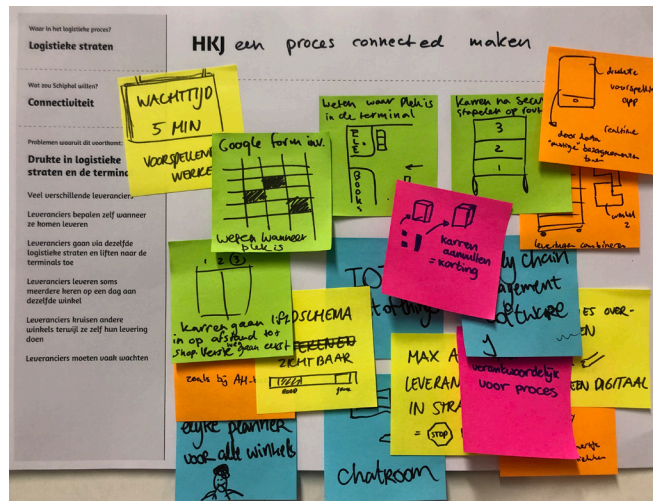 Waar in het logistieke proces?
Logistieke straten
Wat zou Schiphol willen?
Connectiviteit
Problemen waaruit dit voortkomt:
Drukte in logistieke
straten en de termina
Veel verschillende leveranciers
Leveranciers bepalen zelf wanneer
ze komen leveren
Leveranciers gaan via dezelfde
logistieke straten en liften naar de
terminals toe
Leveranciers leveren soms
meerdere keren op een dag aan
dezelfde winkel
Leveranciers kruisen andere
winkels terwijl ze zelf hun levering
doen
Leveranciers moeten vaak wachten
HKJ een proces connected maken
WACHTTIJD
5 MIN
VOORSPELLEN
WERKE
Google form inv.
weten wanneer
plek is
weten waar plek is
in de terminal
ELE
BOOKS
Karren na Secu
stapelen op rout
3
2
1
drukte
voorspell
app
realtime
door data
toen
winkel
2
leveringen combineren
karren
aanvullen
= korting
1 2 3
Karren gaan
in op afstand tot
shop. Verste gaan eerst
LIFTSCHEMA
ZICHTBAAR
TOT
y chain
gement
tware
MAX A
LEVERAN
IN STRA
= STOP
verantwoordelijk
voor proces
ES OVER-
EN
EEN DIGITAAL
zoals bij AH-
elijke planner
voor alle winkels
chatroom